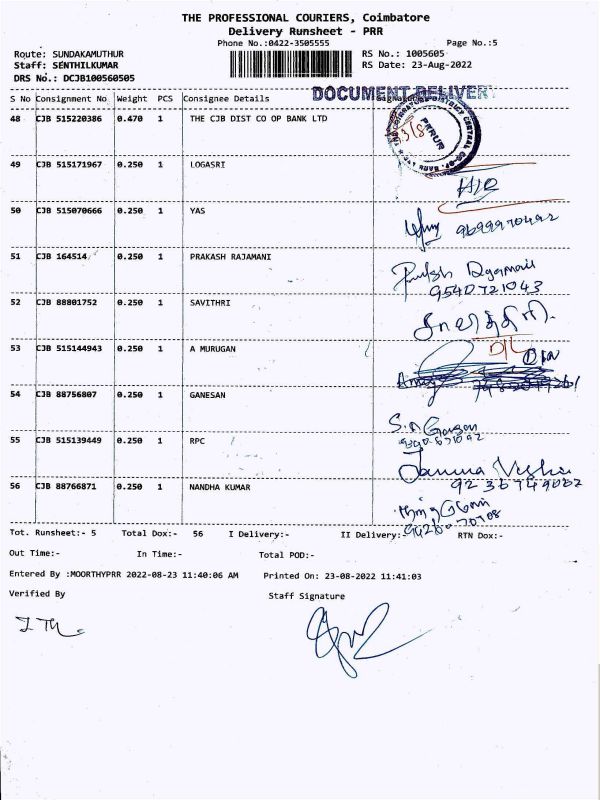 THE PROFESSIONAL COURIERS, Coimbatore
Delivery Runsheet - PRR
Phone No.:0422-3505555 Page No.:5
Route: SUNDAKAMUTHUR RS No.: 1005605
Staff: SENTHILKUMAR RS Date: 23-Aug-2022
DRS No.: DCJB100560505
DOCUMENT DELIVERY
S No Consignment No Weight PCS Consignee Details
48 CJB 515220386 0.470 1 THE CJB DIST CO OP BANK LTD
PERUR
49 CJB 515171967 0.250 1 LOGASRI
50 CJB 515070666 0.250 1 YAS
51 CJB 164514 0.250 1 PRAKASH RAJAMANI
9540721043
52 CJB 88801752 0.250 1 SAVITHRI
53 CJB 515144943 0.250 1 A MURUGAN
54 CJB 88756807 0.250 1 GANESAN
55 CJB 515139449 0.250 1 RPC
56 CJB 88766871 0.250 1 NANDHA KUMAR
Tot. Runsheet:- 5 Total Dox:- 56 I Delivery:- II Delivery:- RTN Dox:-
Out Time:- In Time:- Total POD:-
Entered By :MOORTHYPRR 2022-08-23 11:40:06 AM Printed On: 23-08-2022 11:41:03
Verified By Staff Signature